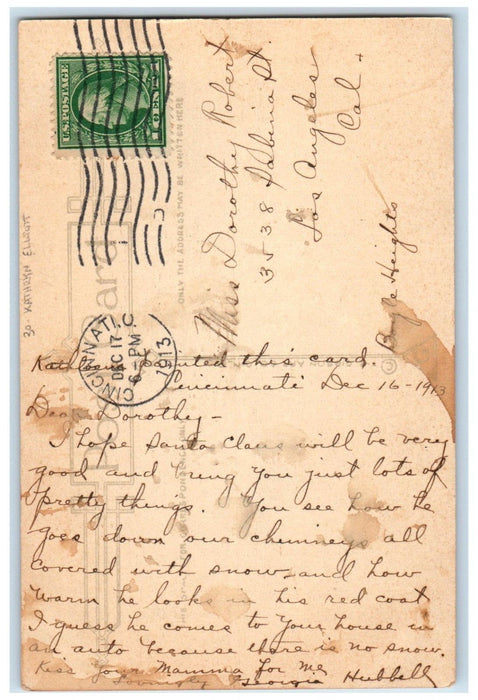 U.S. POSTAGE
1 CENT 1
CINCINNATI, O.
DEC 17
6 PM
1913
30 - KATHRYN ELLIOTT
Post Card
ONLY THE ADDRESS MAY BE WRITTEN HERE
Miss Dorothy Robert
3538 Sabina St.
Los Angeles
Cal
Boyle Heights
painted this card.
Cincinnati Dec 16 - 1913
Dear Dorothy -
I hope Santa Claus will be very
good and bring you just lots of
pretty things. You see how he
goes down our chimneys all
covered with snow and how
warm he looks in his red coat
I guess he comes to your house in
an auto because there is no snow.
Kiss your Mamma for me
Lovingly Georgia Hubbell